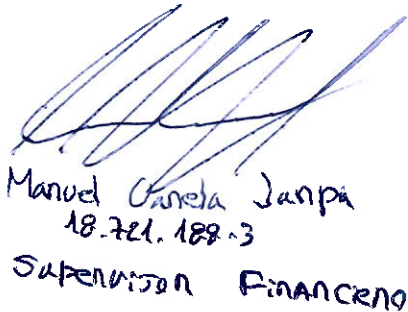 Manuel Varela Jampa
18.721.188-3
Supervisor Financero